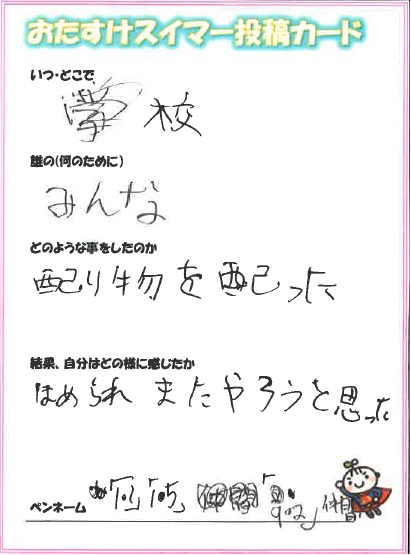 おたすけスイマー投稿カード
いつ・どこで
学校
誰の(何のために)
みんな
どのような事をしたのか
配り物を配った
結果、自分はどの様に感じたか
ほめられまたやろうと思った
ペンネーム